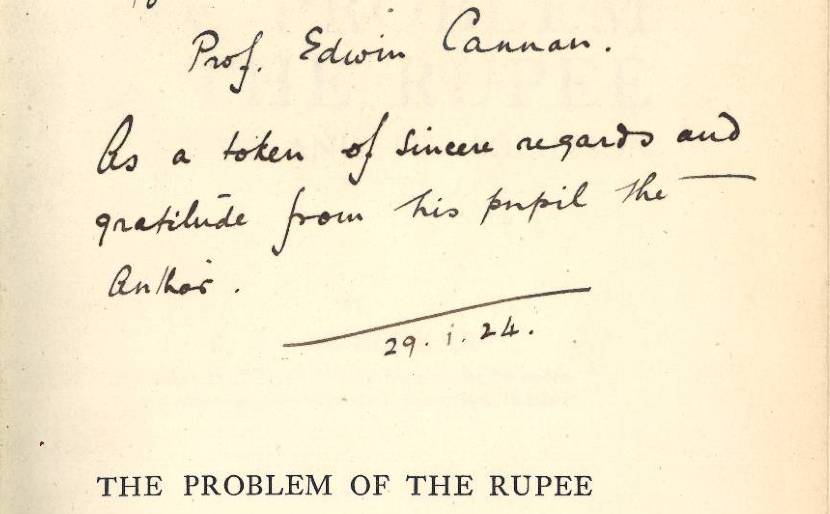 Prof. Edwin Cannan.
As a token of sincere regards and
gratitude from his pupil the
Author.
29. 1. 24.
THE PROBLEM OF THE RUPEE